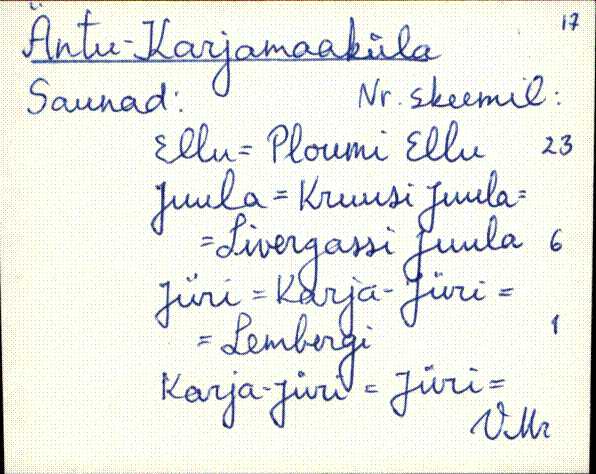 17
Äntu-Karjamaaküla
Saunad: Nr. skeemil:
Ellu = Ploumi Ellu 23
Juula = Kruusi Juula =
= Livergassi Juula 6
Jüri = Karja-Jüri =
= Lembergi 1
Karja-Jüri = Jüri =
VMr